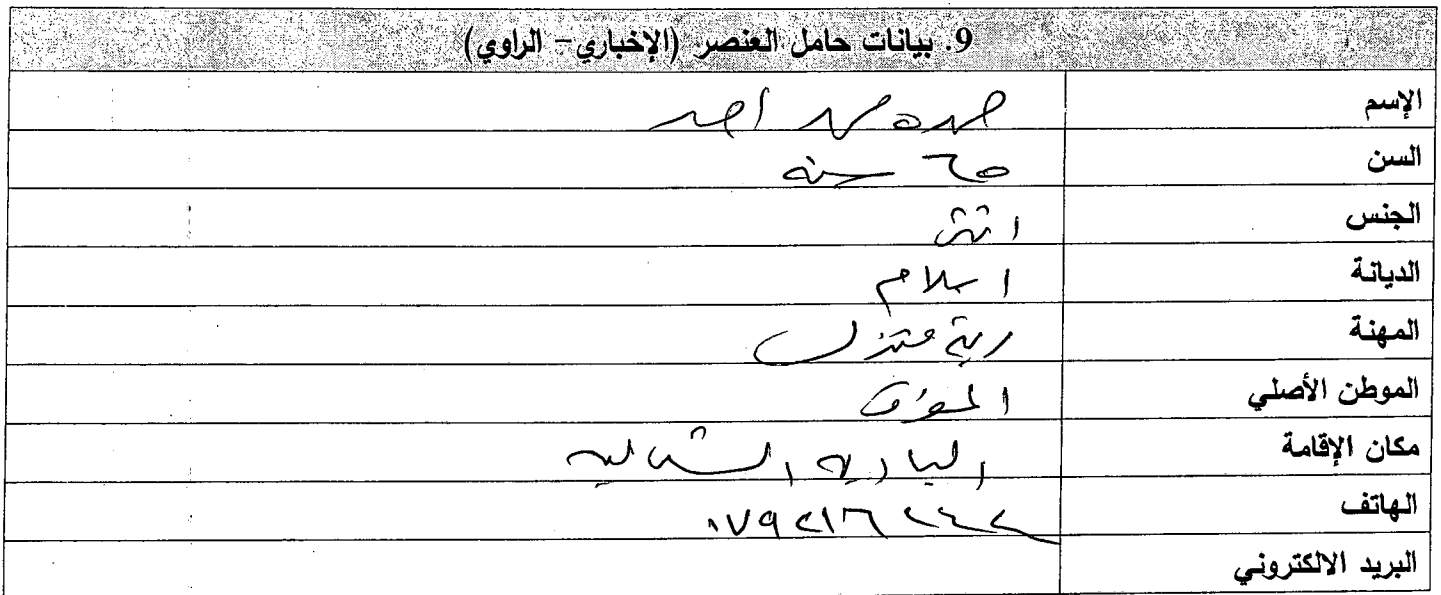 9. بيانات حامل العنصر (الإخباري- الراوي)
الإسم حمده محمد احمد
السن ٦٥ سنه
الجنس انثى
الديانة اسلام
المهنة ربة منزل
الموطن الأصلي المفرق
مكان الإقامة الباديه الشماليه
الهاتف
البريد الالكتروني